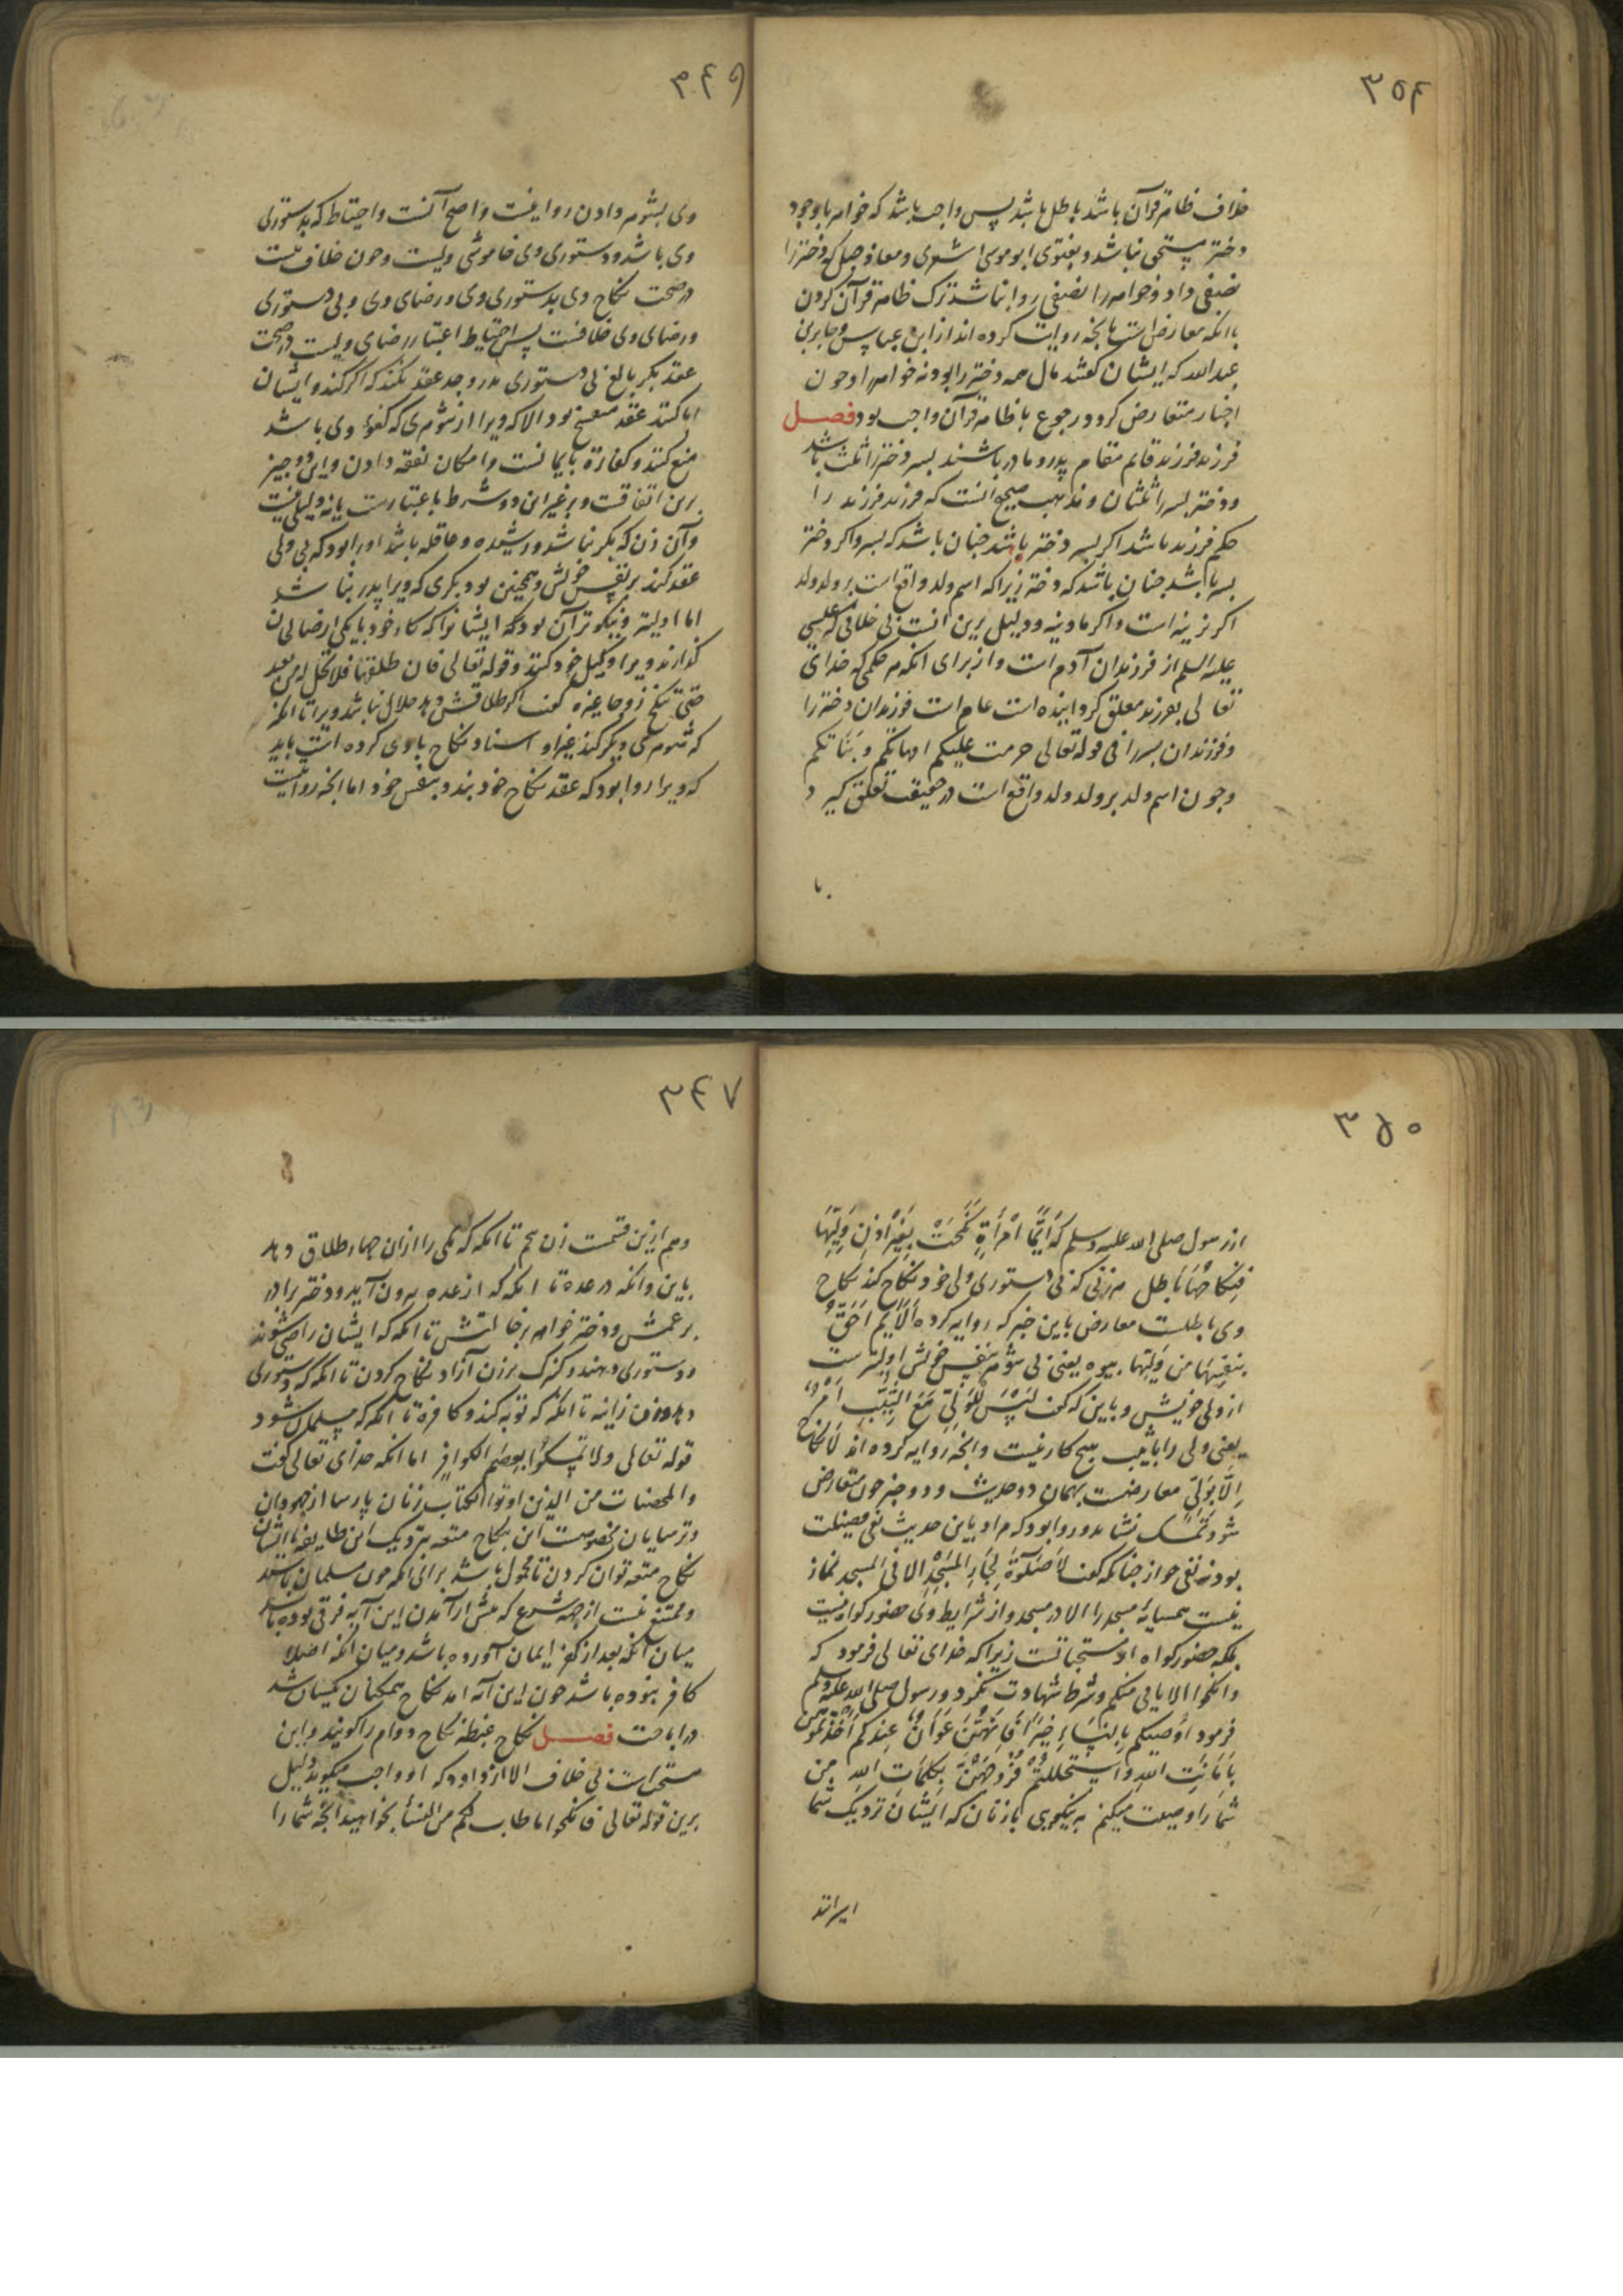 ۳۵۴
خلاف ظاهر قرآن باشد باطل باشد پس واجب باشد که خواهر با وجود
دختر مستحق نباشد و بفتوی ابو موسی اشعری و معاذ جبل که دختر را
نصفی داد و خواهر را نصفی روا نباشد ترک ظاهر قرآن کردن
با انکه معارض است بانچه روایت کرده اند از ابن عباس و جابر بن
عبد الله که ایشان گفتند مال همه دختر را بود نه خواهر را و چون
اخبار متعارض گردد رجوع با ظاهر قرآن واجب بود فصل
فرزند فرزند قایم مقام پدر و مادر باشند پسر دختر را ثلث باشد
و دختر پسر را ثلثان و مذهب صحیح انست که فرزند فرزند را
حکم فرزند باشد اگر پسر دختر باشد چنان باشد که پسر و اگر دختر
پسر باشد چنان باشد که دختر زیرا که اسم ولد واقع است بر ولد ولد
اگر نرینه است و اگر مادینه و دلیل برین انست بی خلافی که عیسی
علیه السلم از فرزندان آدم است و از برای انکه هر حکمی که خدای
تعالی بفرزند معلق گردانیده است عام است فرزندان دختر را
و فرزندان پسر را فی قوله تعالی حرمت علیکم امهاتکم و بناتکم
و چون اسم ولد بر ولد ولد واقع است در حقیقت تعلق گیرد
با
۳۴۶
وی بشوهر دادن روا نیست و اصح آنست و احتیاط که بدستوری
وی باشد و دستوری وی خاموشی ویست و چون خلاف نیست
در صحت نکاح وی بدستوری وی و رضای وی و بی دستوری
و رضای وی خلافست پس احتیاط اعتبار رضای ویست در صحت
عقد بکر بالغ بی دستوری پدر و جد عقد نکند که اگر کند و ایشان
ابا کنند عقد منفسخ بود الا که ویرا از شوهری که کفو وی باشد
منع کنند و کفاءة بایمانست و امکان نفقه دادن و این دو چیز
برین اتفاقست و بر غیر این دو شرط باعتبارست یا نه دلیلی نیست
و آن زن که بکر نباشد و رشیده و عاقله باشد او را بود که بی ولی
عقد کند بر نفس خویش و همچنین بود بکری که ویرا پدر نباشد
اما اولیتر و نیکوتر آن بود که ایشانرا که کار خود با یکی از رضا لی ن
گذارند و ویرا وکیل خود کنند و قوله تعالی فان طلقها فلا تحل له من بعد
حتی تنکح زوجا غیره گفت اگر طلاقش دهد حلال نباشد ویرا تا انکه
که شوهری دیگر کند غیر او اسناد نکاح باوی کرده است باید
که ویرا روا بود که عقد نکاح خود بندد بنفس خود اما انچه روایت
۳۵۰
از رسول صلی الله علیه و سلم که اَیُّمَا امْرَأَةٍ نُکِحَتْ بِغَیْرِ اِذْنِ وَلِیِّهَا
فَنِکَاحُهَا بَاطِل هر زنی که بی دستوری ولی خود نکاح کند نکاح
وی باطلست معارض باین خبر که روایه کرده اَلاَیِّمُ اَحَقُّ
بِنَفْسِهَا مِن وَلِیِّهَا بیوه یعنی بی شوهر بنفس خویش اولیترست
از ولی خویش و باین که گفت لَیْسَ لِلْوَلِیِّ مَعَ الثَّیِّبِ اَمْرٌ
یعنی ولی را با ثیب هیچ کار نیست و انچه روایه کرده اند لَا نِکَاحَ
اِلَّا بِوَلِیٍّ معارضست بهمان دو حدیث و دو خبر چون متعارض
شود تمسک نشاید و روا بود که مراد باین حدیث نفی فضیلت
بود نه نفی جواز چنانکه گفت لَا صَلٰوةَ لِجَارِ الْمَسْجِدِ الا فی المسجد نماز
نیست همسایهٔ مسجد را الا در مسجد و از شرایط ولی حضور گواه نیست
بلکه حضور گواه از مستحباتست زیرا که خدای تعالی فرمود که
وانکحوا الایامی منکم و شرط شهادت نکرد و رسول صلی الله علیه و سلم
فرمود اُوصِیکُم بِالنِّسَاءِ خَیْرًا فَاِنَّهُنَّ عَوَانٌ عِنْدَکُمْ اَخَذْتُمُوهُنَّ
بِاَمَانَتِ اللهِ وَاسْتَحْلَلْتُمْ فُرُوجَهُنَّ بِکَلِمَاتِ اللهِ من
شما را وصیت میکنم به نیکویی با زنان که ایشان نزدیک شما
اسیرانند
۳۴۷
و هم ازین قسمت زن پنجم تا انکه که یکی را ازان چهار طلاق دهد
باین و انکه در عده تا انکه که از عده برون آید و دختر برادر
بر عمتش و دختر خواهر بر خالتش تا انکه که ایشان راضی شوند
و دستوری دهند و کنیزک بر زن آزاد نکاح کردن تا انکه که دستوری
دهد و زن زانیه تا انکه که توبه کند و کافره تا انکه که مسلمان شود
قوله تعالی ولا تمسکوا بعصم الکوافر اما انکه خدای تعالی گفت
والمحصنات من الذین اوتوا الکتاب زنان پارسا از جهودان
و ترسایان مخصوصست این نکاح متعه نزدیک این طایفه با ایشان
نکاح متعه توان کردن تا محمول باشد برانکه چون مسلمان باشند
و ممتنع نیست از جهة شرع که پیش از آمدن این آیه فرقی بوده باشد
میان آنکه بعد از کفر ایمان آورده باشد و میان انکه اصلا
کافر نبوده باشد چون این آیه آمد نکاح همگنان یکسان شد
در اباحت فصل نکاح غبطه نکاح دوام را گویند و این
مستحب است بی خلاف الا از داود که او واجب میگوید دلیل
برین قوله تعالی فانکحوا ما طاب لکم من النسا بخواهید انچه شما را